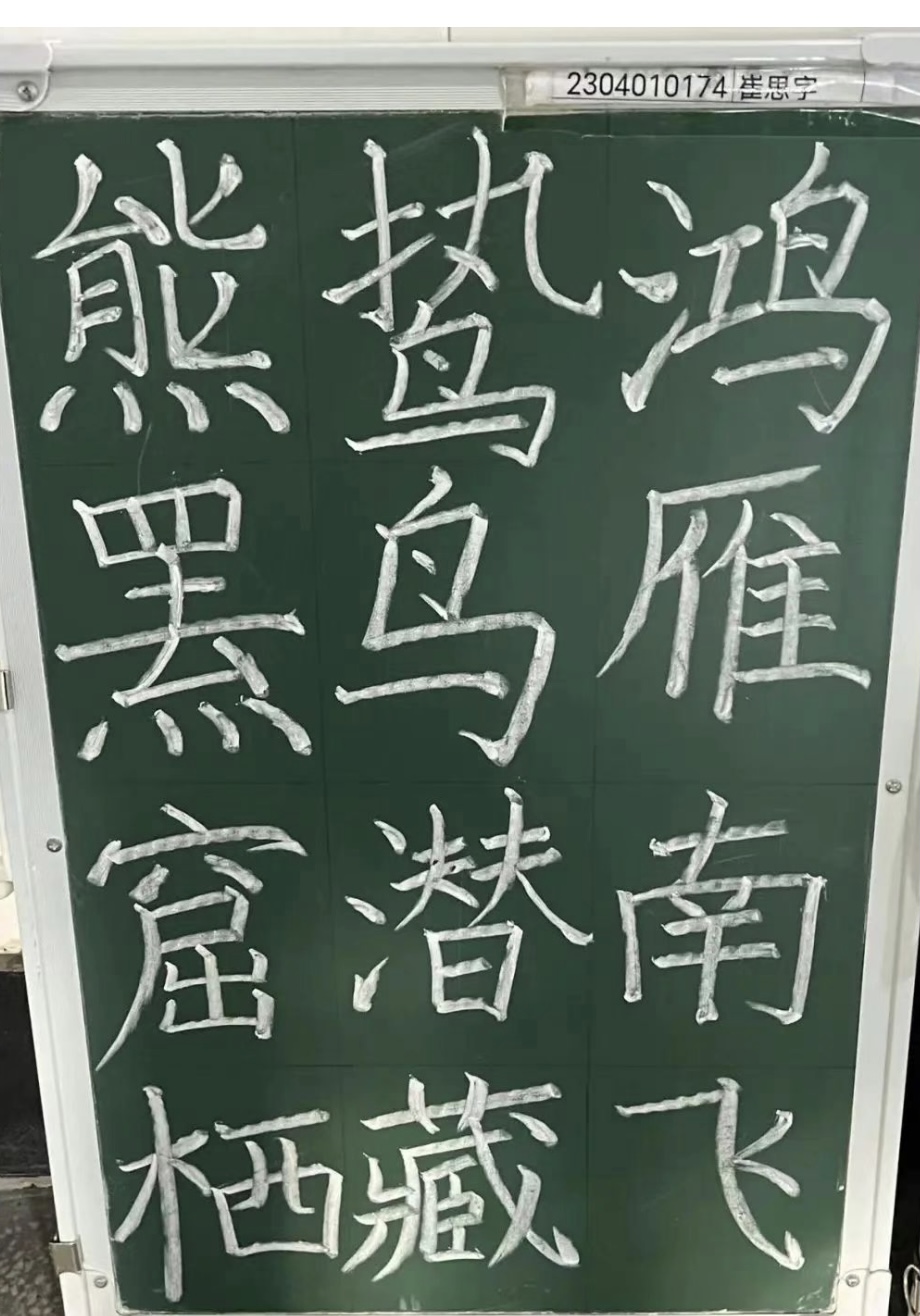 2304010174 崔思字
鸿雁南飞
鸷鸟潜藏
熊罴窟栖